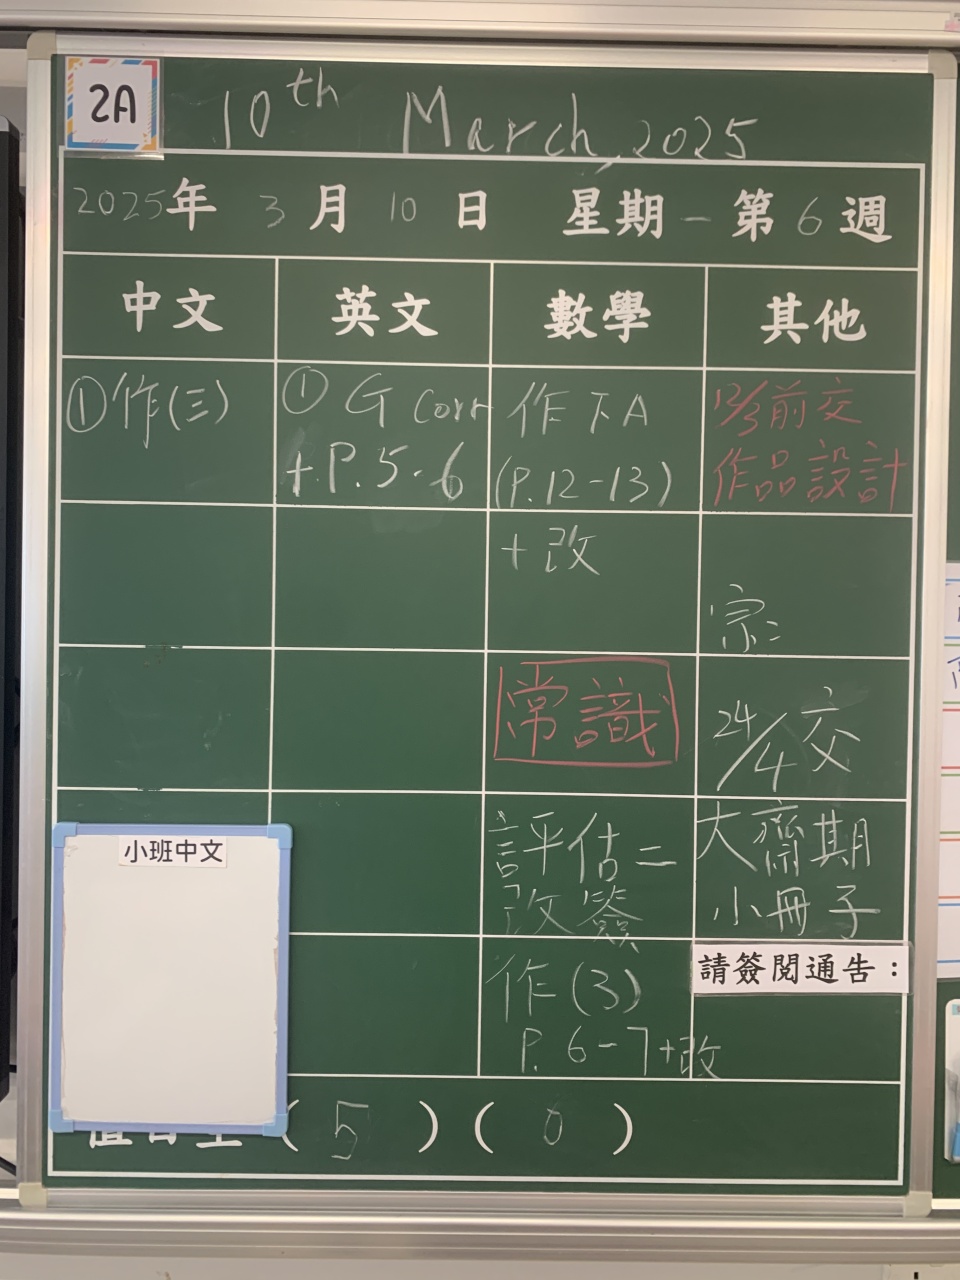 2A
10th March, 2025
2025年 3月 10日 星期一 第6週
中文 英文 數學 其他
①作(三)
① G Corr
+P.5-6
作下A
(P.12-13)
+改
常識
評估二
改簽
作(3)
P.6-7+改
12/3前交
作品設計
宗:
24/4交
大齋期
小冊子
請簽閱通告：
小班中文
(5)(0)